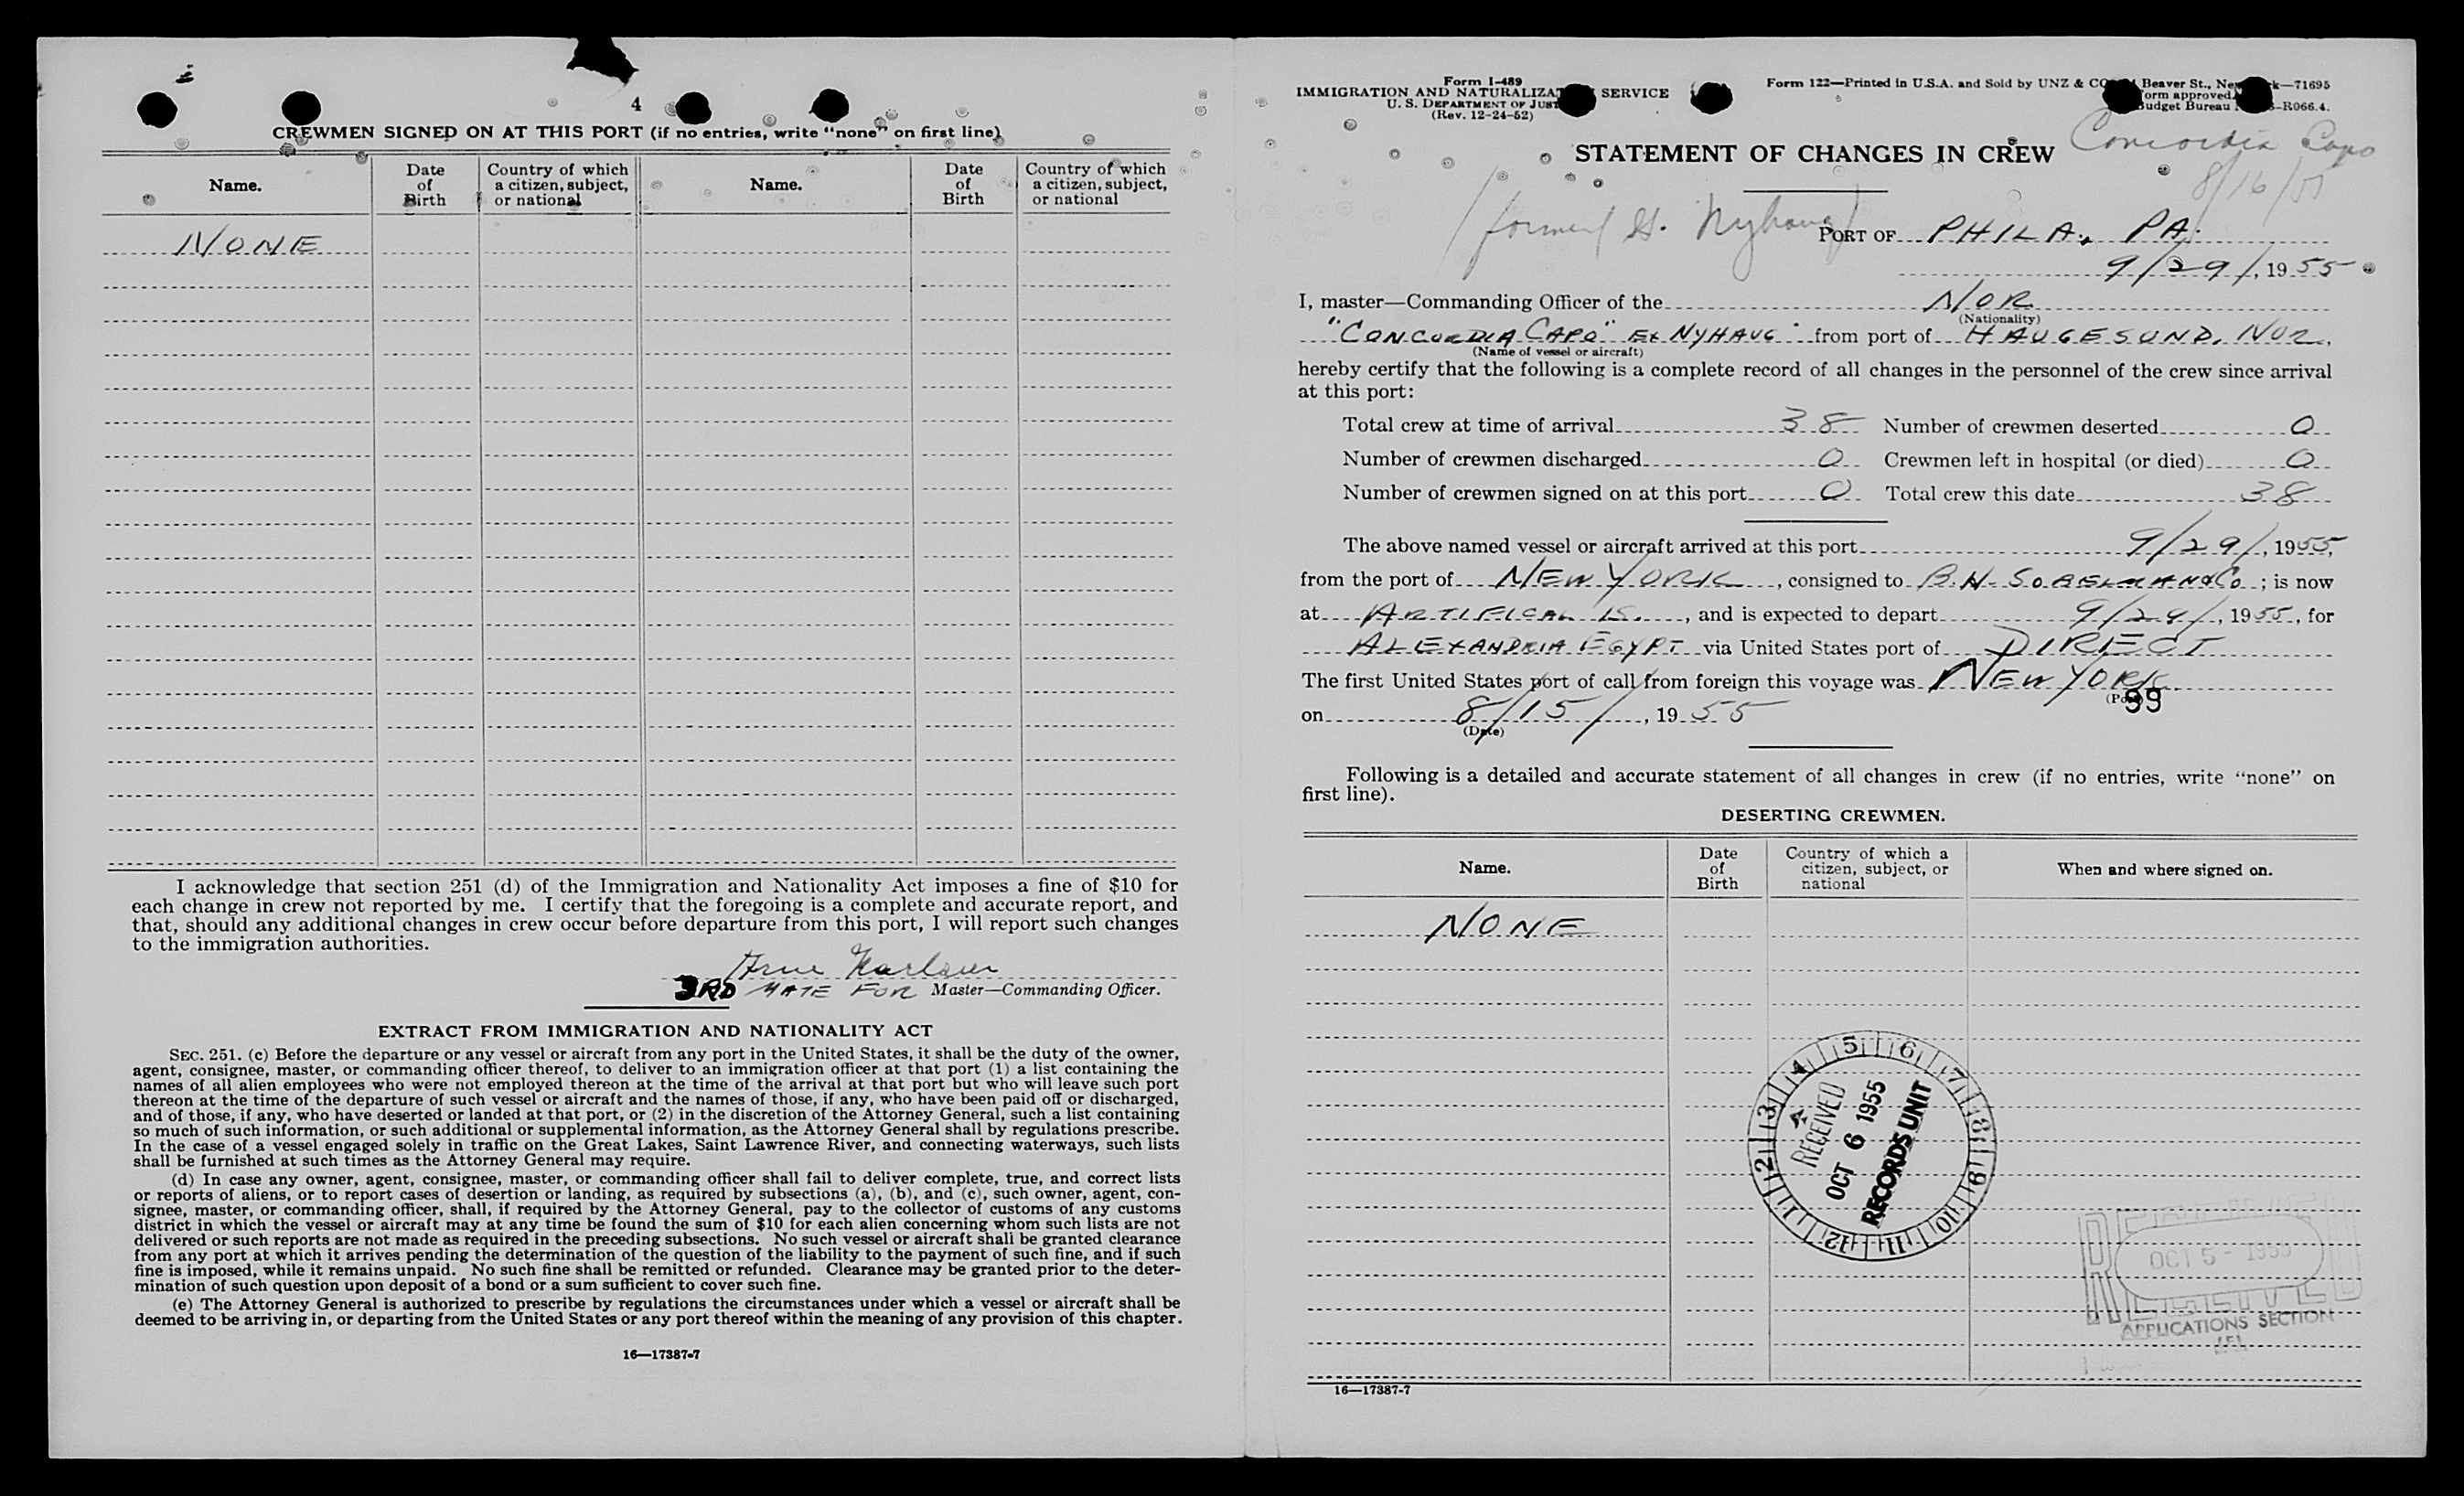 4
CREWMEN SIGNED ON AT THIS PORT (if no entries, write "none" on first line)
Name.
Date of Birth
Country of which a citizen, subject, or national
Name.
Date of Birth
Country of which a citizen, subject, or national
NONE
I acknowledge that section 251 (d) of the Immigration and Nationality Act imposes a fine of $10 for
each change in crew not reported by me. I certify that the foregoing is a complete and accurate report, and
that, should any additional changes in crew occur before departure from this port, I will report such changes
to the immigration authorities.
Arne Karlsen
3RD MATE FOR Master—Commanding Officer.
EXTRACT FROM IMMIGRATION AND NATIONALITY ACT
SEC. 251. (c) Before the departure or any vessel or aircraft from any port in the United States, it shall be the duty of the owner,
agent, consignee, master, or commanding officer thereof, to deliver to an immigration officer at that port (1) a list containing the
names of all alien employees who were not employed thereon at the time of the arrival at that port but who will leave such port
thereon at the time of the departure of such vessel or aircraft and the names of those, if any, who have been paid off or discharged,
and of those, if any, who have deserted or landed at that port, or (2) in the discretion of the Attorney General, such a list containing
so much of such information, or such additional or supplemental information, as the Attorney General shall by regulations prescribe.
In the case of a vessel engaged solely in traffic on the Great Lakes, Saint Lawrence River, and connecting waterways, such lists
shall be furnished at such times as the Attorney General may require.
(d) In case any owner, agent, consignee, master, or commanding officer shall fail to deliver complete, true, and correct lists
or reports of aliens, or to report cases of desertion or landing, as required by subsections (a), (b), and (c), such owner, agent, con-
signee, master, or commanding officer, shall, if required by the Attorney General, pay to the collector of customs of any customs
district in which the vessel or aircraft may at any time be found the sum of $10 for each alien concerning whom such lists are not
delivered or such reports are not made as required in the preceding subsections. No such vessel or aircraft shall be granted clearance
from any port at which it arrives pending the determination of the question of the liability to the payment of such fine, and if such
fine is imposed, while it remains unpaid. No such fine shall be remitted or refunded. Clearance may be granted prior to the deter-
mination of such question upon deposit of a bond or a sum sufficient to cover such fine.
(e) The Attorney General is authorized to prescribe by regulations the circumstances under which a vessel or aircraft shall be
deemed to be arriving in, or departing from the United States or any port thereof within the meaning of any provision of this chapter.
16—17387-7
Form I-489
IMMIGRATION AND SERVICE
U. S. DEPARTMENT OF
(Rev. 12-24-52)
Form 122—Printed in U.S.A. and Sold by UNZ & Beaver St., —71695
approved.
Budget Bureau -R066.4.
Concordia Capo
8/16/55
STATEMENT OF CHANGES IN CREW
PORT OF PHILA, PA.
9/29/, 1955
I, master—Commanding Officer of the NOR
(Nationality)
"CONCORDIA CAPO" EX NYHAUG from port of HAUGESUND, NOR.
(Name of vessel or aircraft)
hereby certify that the following is a complete record of all changes in the personnel of the crew since arrival
at this port:
Total crew at time of arrival 38 Number of crewmen deserted 0
Number of crewmen discharged 0 Crewmen left in hospital (or died) 0
Number of crewmen signed on at this port 0 Total crew this date 38
The above named vessel or aircraft arrived at this port 9/29/, 1955,
from the port of NEW YORK, consigned to B.H. SOBELMAN & CO; is now
at ARTIFICAL IS., and is expected to depart 9/29/, 1955, for
ALEXANDRIA EGYPT via United States port of DIRECT
The first United States port of call from foreign this voyage was NEW YORK
99
on 8/15/, 1955
(Date)
Following is a detailed and accurate statement of all changes in crew (if no entries, write "none" on
first line).
DESERTING CREWMEN.
Name.
Date of Birth
Country of which a citizen, subject, or national
When and where signed on.
NONE
1 2 3 4 5 6 7 8 9 10 11 12
RECEIVED
OCT 6 1955
RECORDS UNIT
OCT 5 - 1955
RECEIVED
APPLICATIONS SECTION
16—17387-7